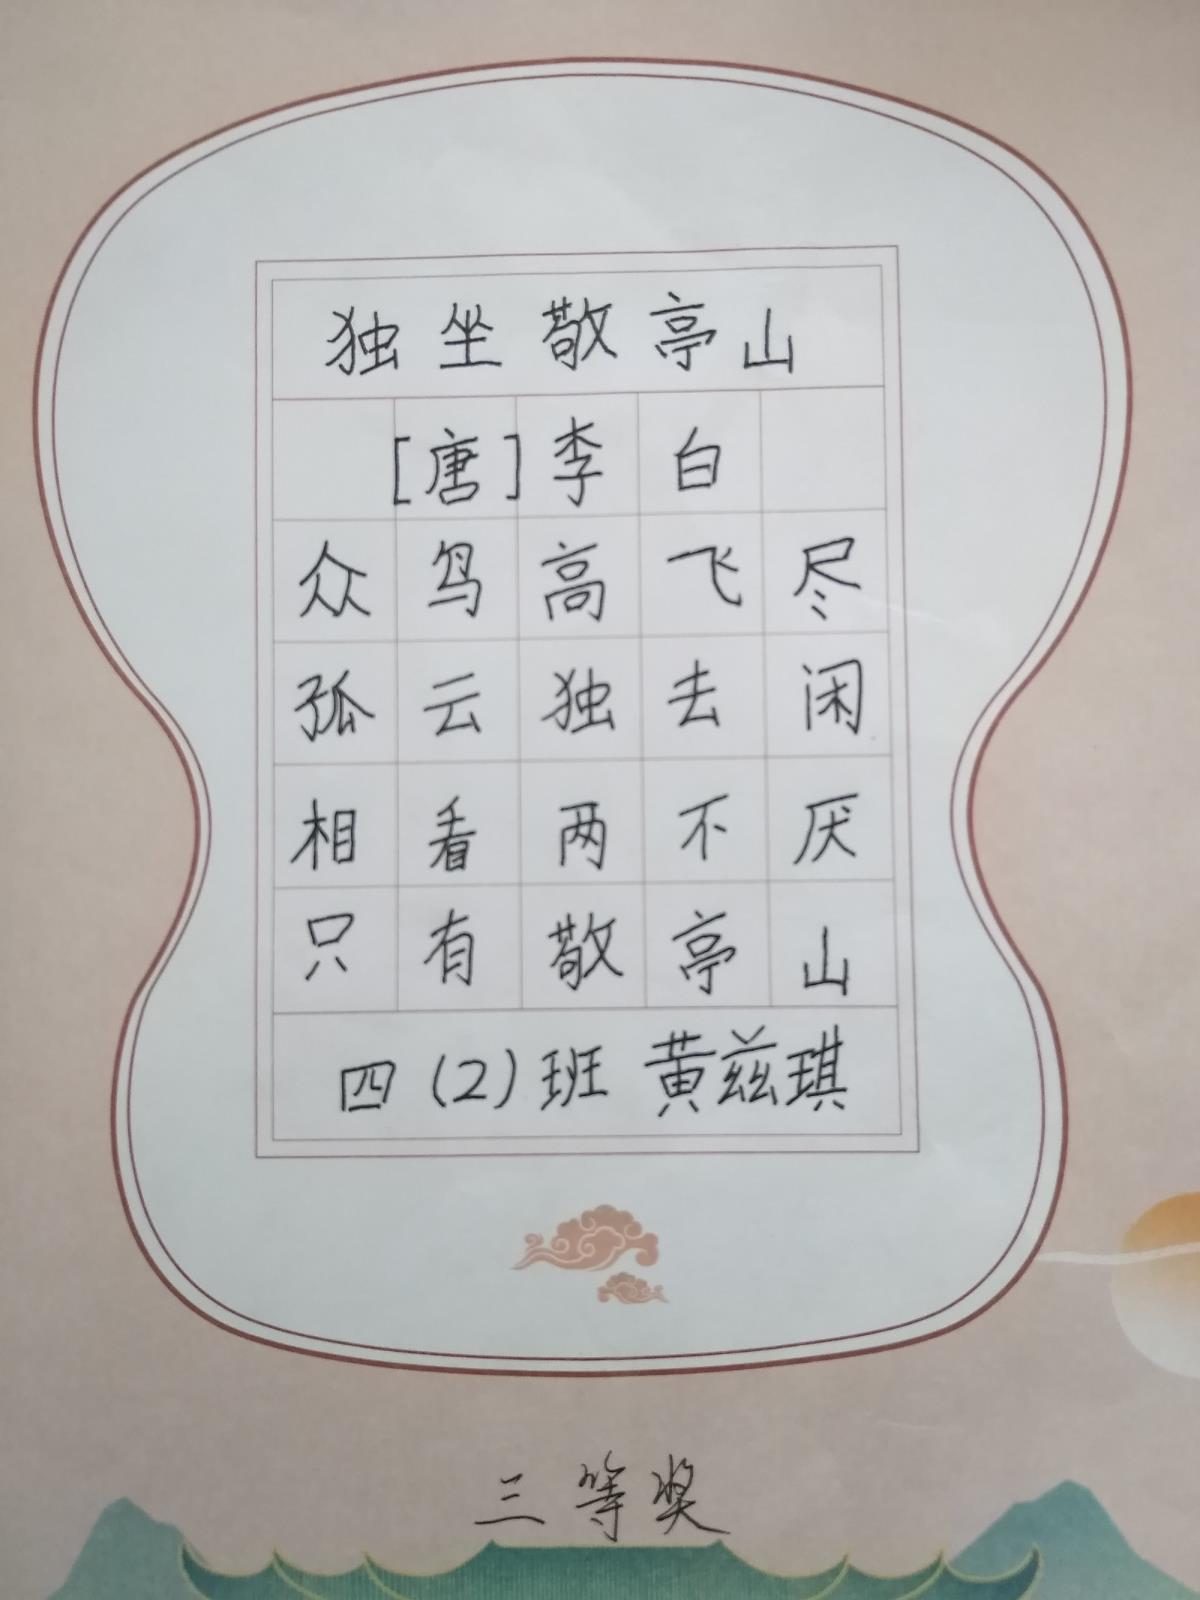 独坐敬亭山
[唐]李白
众鸟高飞尽
孤云独去闲
相看两不厌
只有敬亭山
四(2)班 黄兹琪
三等奖